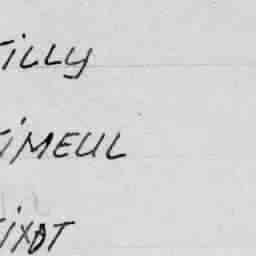 TiLLY
TiMEUL
TiXDT